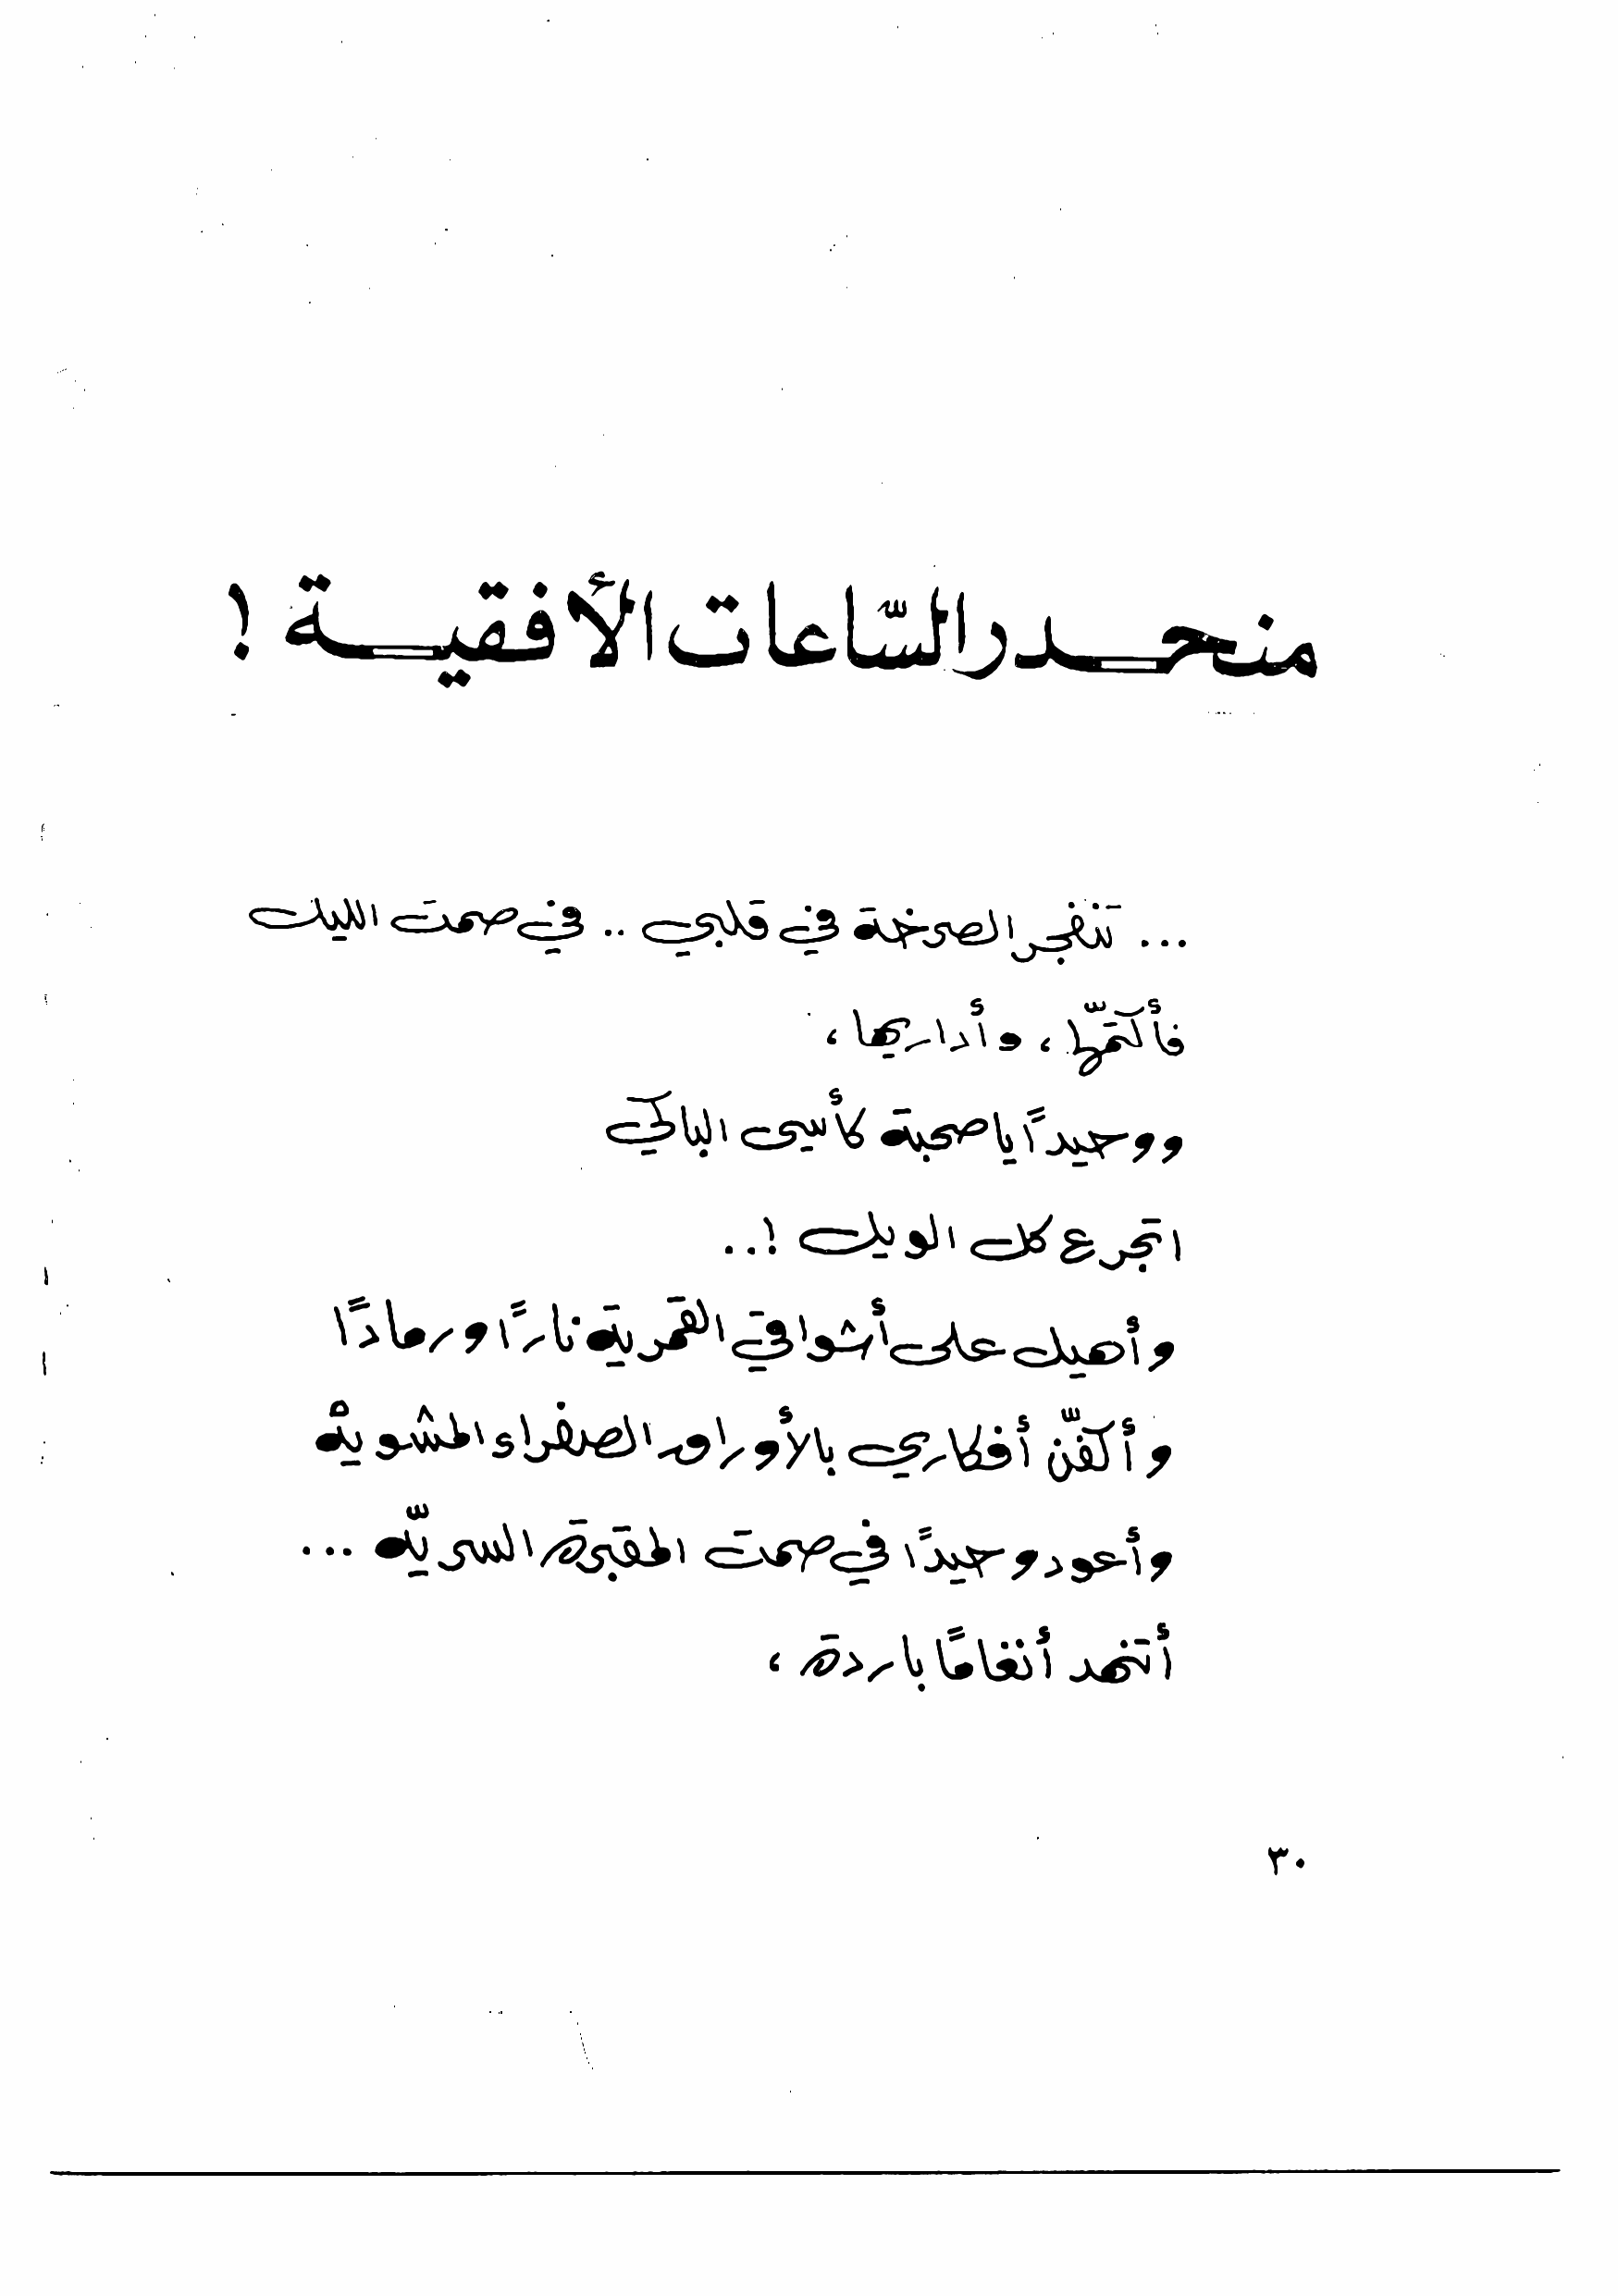 منحدر السّاعات الأفقية !
... تنفجر الصرخة في قلبي .. في صمت الليل
فأكتمّها ، وأداريها ،
ووحيداً يا صحبة كأسي الباكي
اتجرع كل الويل !..
وأهيل على أشواقي القمرية ناراً ورماداً
وأكفّن أفكاري بالأوراق الصفراء المشويهْ
وأعود وحيداً في صمت المقبرة السريّه ...
أتنهد أنغاماً باردة ،
٣٠